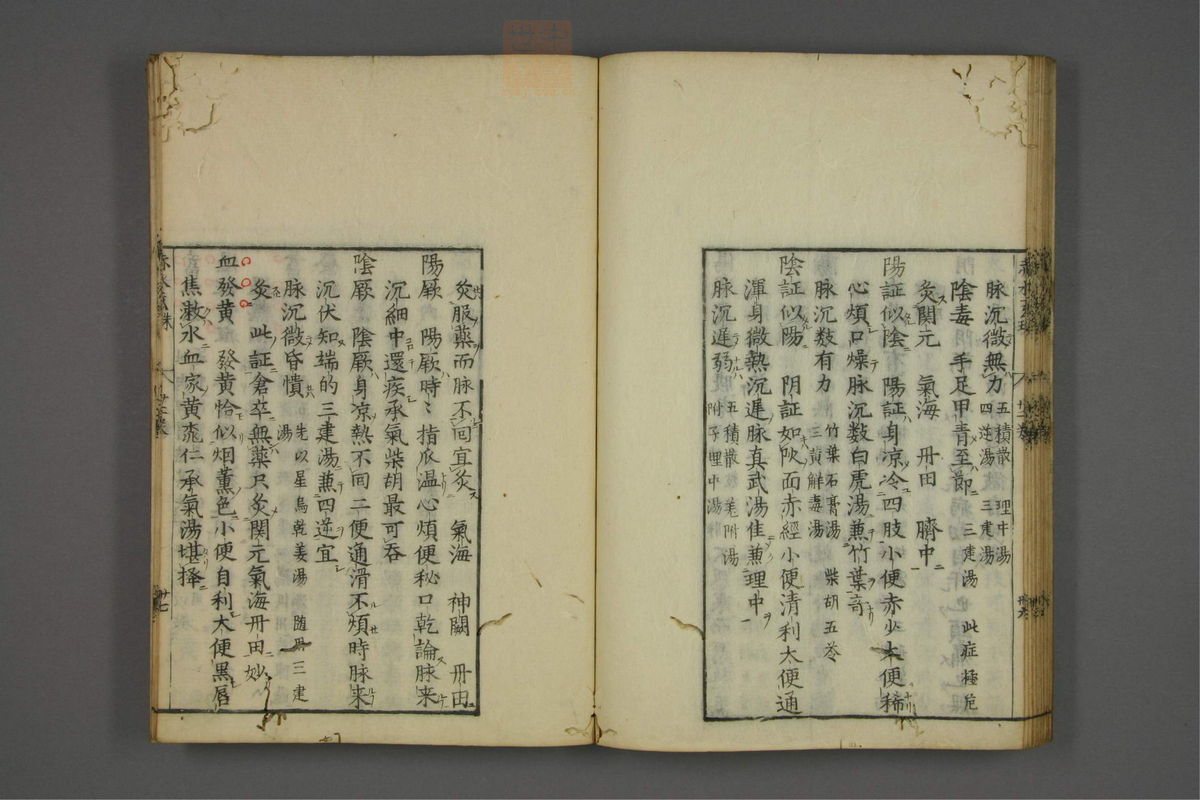 脉沉微無力 五積散 理中湯 四逆湯 三建湯
陰毒 手足甲青至節 三建湯 此症極危
灸関元 氣海 丹田 臍中
陽証似陰 陽証身凉冷四肢小便赤少大便稀
心煩口燥脉沉数白虎湯蕪竹葉奇
脉沉数有力 竹葉石膏湯 柴胡五苓 三黄解毒湯
陰証似陽 阴証如陽面赤經小便清利大便通
渾身微熱沉遲脉真武湯佳蕪理中
脉沉遲弱 五積散 姜附湯 附子理中湯
灸服藥而脉不回宜灸 氣海 神闕 丹田
陽厥 陽厥時〻指瓜温心煩便秘口乾論脉来
沉細中還疾承氣柴胡最可吞
陰厥 陰厥身凉熱不同二便通滑不煩時脉来
沉伏知端的三建湯蕪四逆宜
脉沉微昏憒 先以星烏乾姜湯 随用三建湯
灸 此証倉卒無藥只灸関元氣海丹田妙
血發黄 發黄恰似烟薫色小便自利大便黒唇
焦漱水血家黄桃仁承氣湯堪擇
廿七